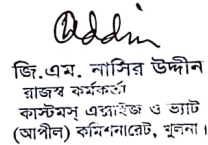 জি.এম. নাসির উদ্দীন
রাজস্ব কর্মকর্তা
কাস্টমস্ এক্সাইজ ও ভ্যাট
(আপীল) কমিশনারেট, খুলনা।